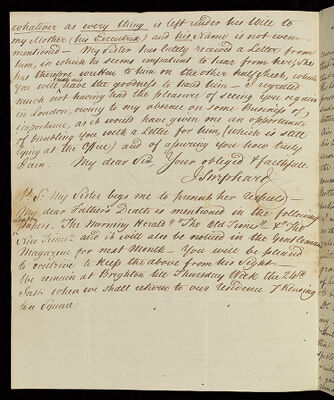 whatever as every thing is left under his Will to
my Mother (his Executrix) and his Name is not even
mentioned — My Sister has lately received a Letter from
him, in which he seems impatient to hear from her, She
has therefore written to him on the other half sheet, which
You will have the goodness to hand him — I regretted
much not having had the pleasure of seeing you again
in London, owing to my absence on some Business of
importance, as it would have given me an opportunity
of troubling you with a Letter for him, (which is still
lying at the Office) and of assuring you how truly
I am. My dear Sir, Your obliged & faithful
J Shephard
P.S. My Sister begs me to present her
My dear Father's Death is mentioned in the following
Papers. The Morning Herald "The Old Times" & "The
New Times" and it will also be noticed in the Gentlemans
Magazine for next Month — You will be pleased
to contrive to keep the above from his Sight —
We remain at Brighton till Thursday Week the 24th
Inst. when we shall return to our Residence 7 Kensing
ton Square